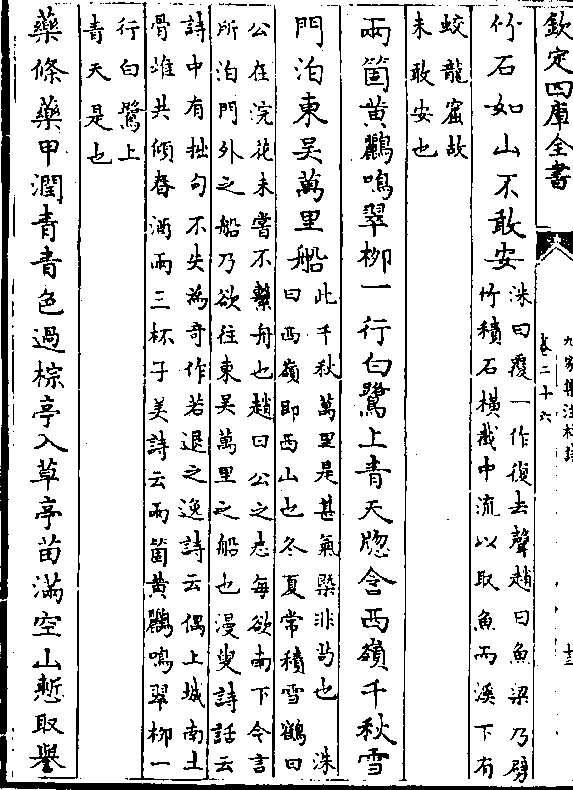 欽定四庫全書
九家集注杜詩
卷二十六
十三
竹石如山不敢安
洙曰覆一作復去聲趙曰魚梁乃劈
竹積石橫截中流以取魚而溪下有
蛟龍窟故
未敢安也
兩箇黄鸝鳴翠柳一行白鷺上青天牕含西嶺千秋雪
門泊東吳萬里船
此千秋萬里是甚氣槩非茍也 洙
曰西嶺即西山也冬夏常積雪鶴曰
公在浣花未嘗不繫舟也趙曰公之志每欲南下今言
所泊門外之船乃欲往東吳萬里之船也漫叟詩話云
詩中有拙句不失為奇作若退之逸詩云偶上城南土
骨堆共傾春酒兩三杯子美詩云兩箇黄鸝鳴翠柳一
行白鷺上
青天是也
藥條藥甲潤青青色過棕亭入草亭苗滿空山慙取譽